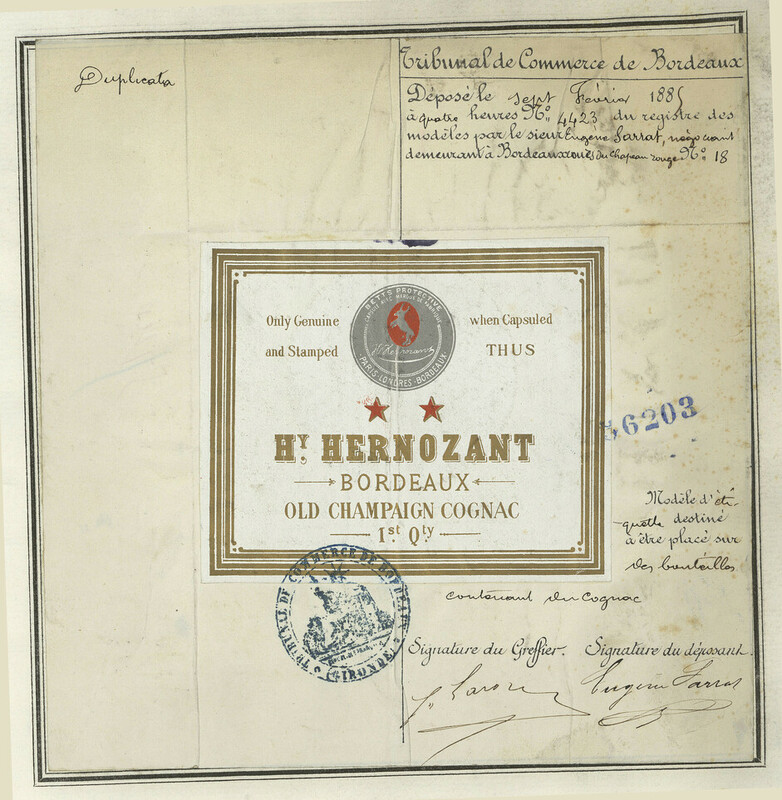 Duplicata
Tribunal de Commerce de Bordeaux
Déposé le sept Février 1885
à quatre heures No. 4423 du registre des
modèles par le sieur Eugène Sarrat, négociant
demeurant à Bordeaux du Chapeau rouge No. 18
BETTS PROTECTIVE
CAPSULE AVEC MARQUE DE FABRIQUE
Hy Hernozant
PARIS-LONDRES-BORDEAUX
Only Genuine when Capsuled
and Stamped THUS
HY. HERNOZANT
BORDEAUX
OLD CHAMPAIGN COGNAC
1st. Qty
56203
Modèle d'éti-
quette destiné
à être placé sur
des bouteilles
contenant du Cognac
TRIBUNAL DE COMMERCE DE BORDEAUX
(GIRONDE)
Signature du Greffier. Signature du déposant.
Eugène Sarrat